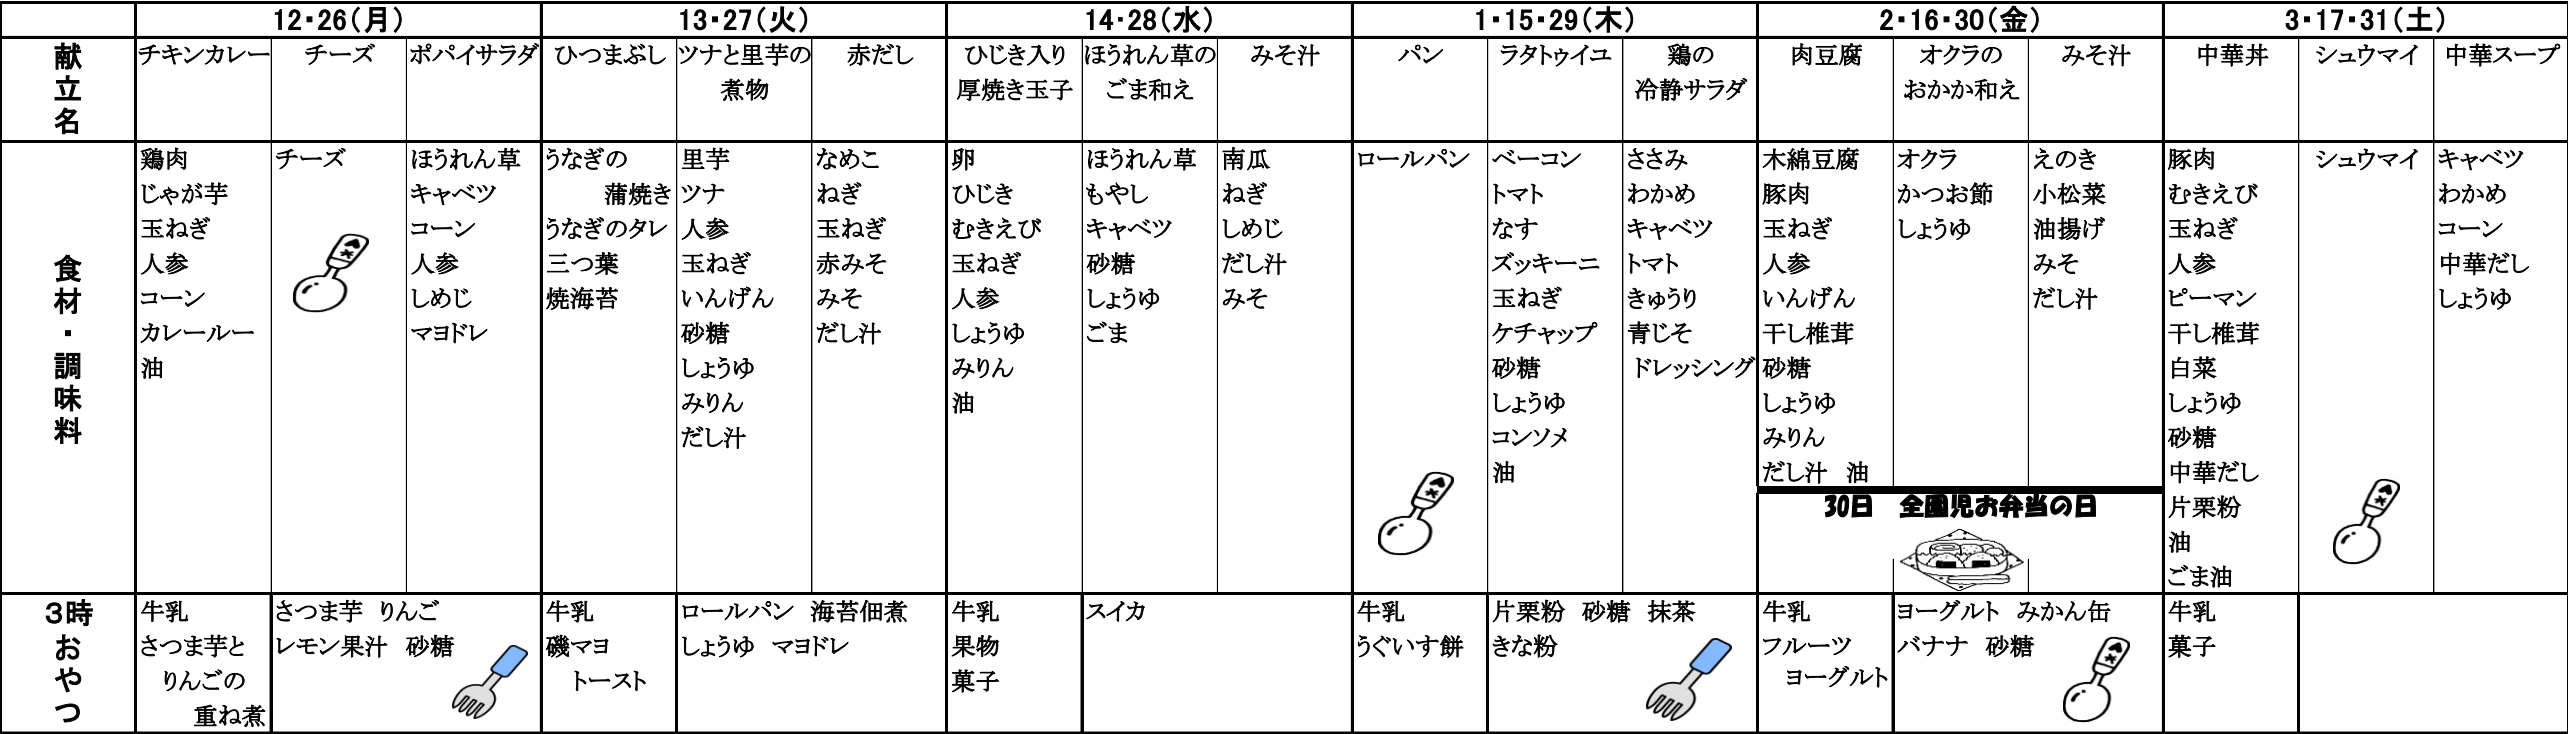 12・26(月)
13・27(火)
14・28(水)
1・15・29(木)
2・16・30(金)
3・17・31(土)
献立名
チキンカレー
チーズ
ポパイサラダ
ひつまぶし
ツナと里芋の
煮物
赤だし
ひじき入り
厚焼き玉子
ほうれん草の
ごま和え
みそ汁
パン
ラタトゥイユ
鶏の
冷静サラダ
肉豆腐
オクラの
おかか和え
みそ汁
中華丼
シュウマイ
中華スープ
食材・調味料
鶏肉
じゃが芋
玉ねぎ
人参
コーン
カレールー
油
チーズ
ほうれん草
キャベツ
コーン
人参
しめじ
マヨドレ
うなぎの
蒲焼き
うなぎのタレ
三つ葉
焼海苔
里芋
ツナ
人参
玉ねぎ
いんげん
砂糖
しょうゆ
みりん
だし汁
なめこ
ねぎ
玉ねぎ
赤みそ
みそ
だし汁
卵
ひじき
むきえび
玉ねぎ
人参
しょうゆ
みりん
油
ほうれん草
もやし
キャベツ
砂糖
しょうゆ
ごま
南瓜
ねぎ
しめじ
だし汁
みそ
ロールパン
ベーコン
トマト
なす
ズッキーニ
玉ねぎ
ケチャップ
砂糖
しょうゆ
コンソメ
油
ささみ
わかめ
キャベツ
トマト
きゅうり
青じそ
ドレッシング
木綿豆腐
豚肉
玉ねぎ
人参
いんげん
干し椎茸
砂糖
しょうゆ
みりん
だし汁 油
オクラ
かつお節
しょうゆ
えのき
小松菜
油揚げ
みそ
だし汁
30日 全園児お弁当の日
豚肉
むきえび
玉ねぎ
人参
ピーマン
干し椎茸
白菜
しょうゆ
砂糖
中華だし
片栗粉
油
ごま油
シュウマイ
キャベツ
わかめ
コーン
中華だし
しょうゆ
3時おやつ
牛乳
さつま芋と
りんごの
重ね煮
さつま芋 りんご
レモン果汁 砂糖
牛乳
磯マヨ
トースト
ロールパン 海苔佃煮
しょうゆ マヨドレ
牛乳
果物
菓子
スイカ
牛乳
うぐいす餅
片栗粉 砂糖 抹茶
きな粉
牛乳
フルーツ
ヨーグルト
ヨーグルト みかん缶
バナナ 砂糖
牛乳
菓子